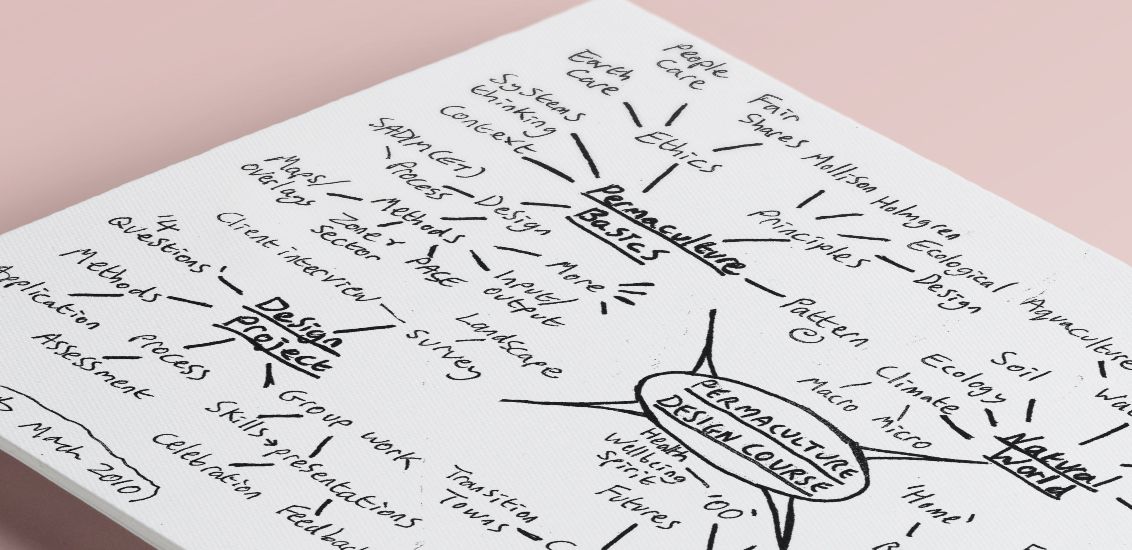 People
Care
Earth
Care
Fair
Shares
Ethics
Systems
thinking
Context
Permaculture
Basics
Mollison
Holmgren
Principles
Ecological
Design
Pattern
SADIM(ET)
Process
Design
Maps/
overlays
Methods
Zone &
Sector
PACE
Input/
output
More
Client interview
Survey
Landscape
'4
Questions'
Methods
Application
Design
Project
Process
Assessment
Group work
Skills → presentations
Celebration
Feedbac
Mach 2010)
PERMACULTURE
DESIGN COURSE
Aquaculture
Wat
Soil
Ecology
Climate
Macro
Micro
Natural
World
Health
Wellbeing
Spirit
'00'
Futures
Transition
Towns
C
'Home'